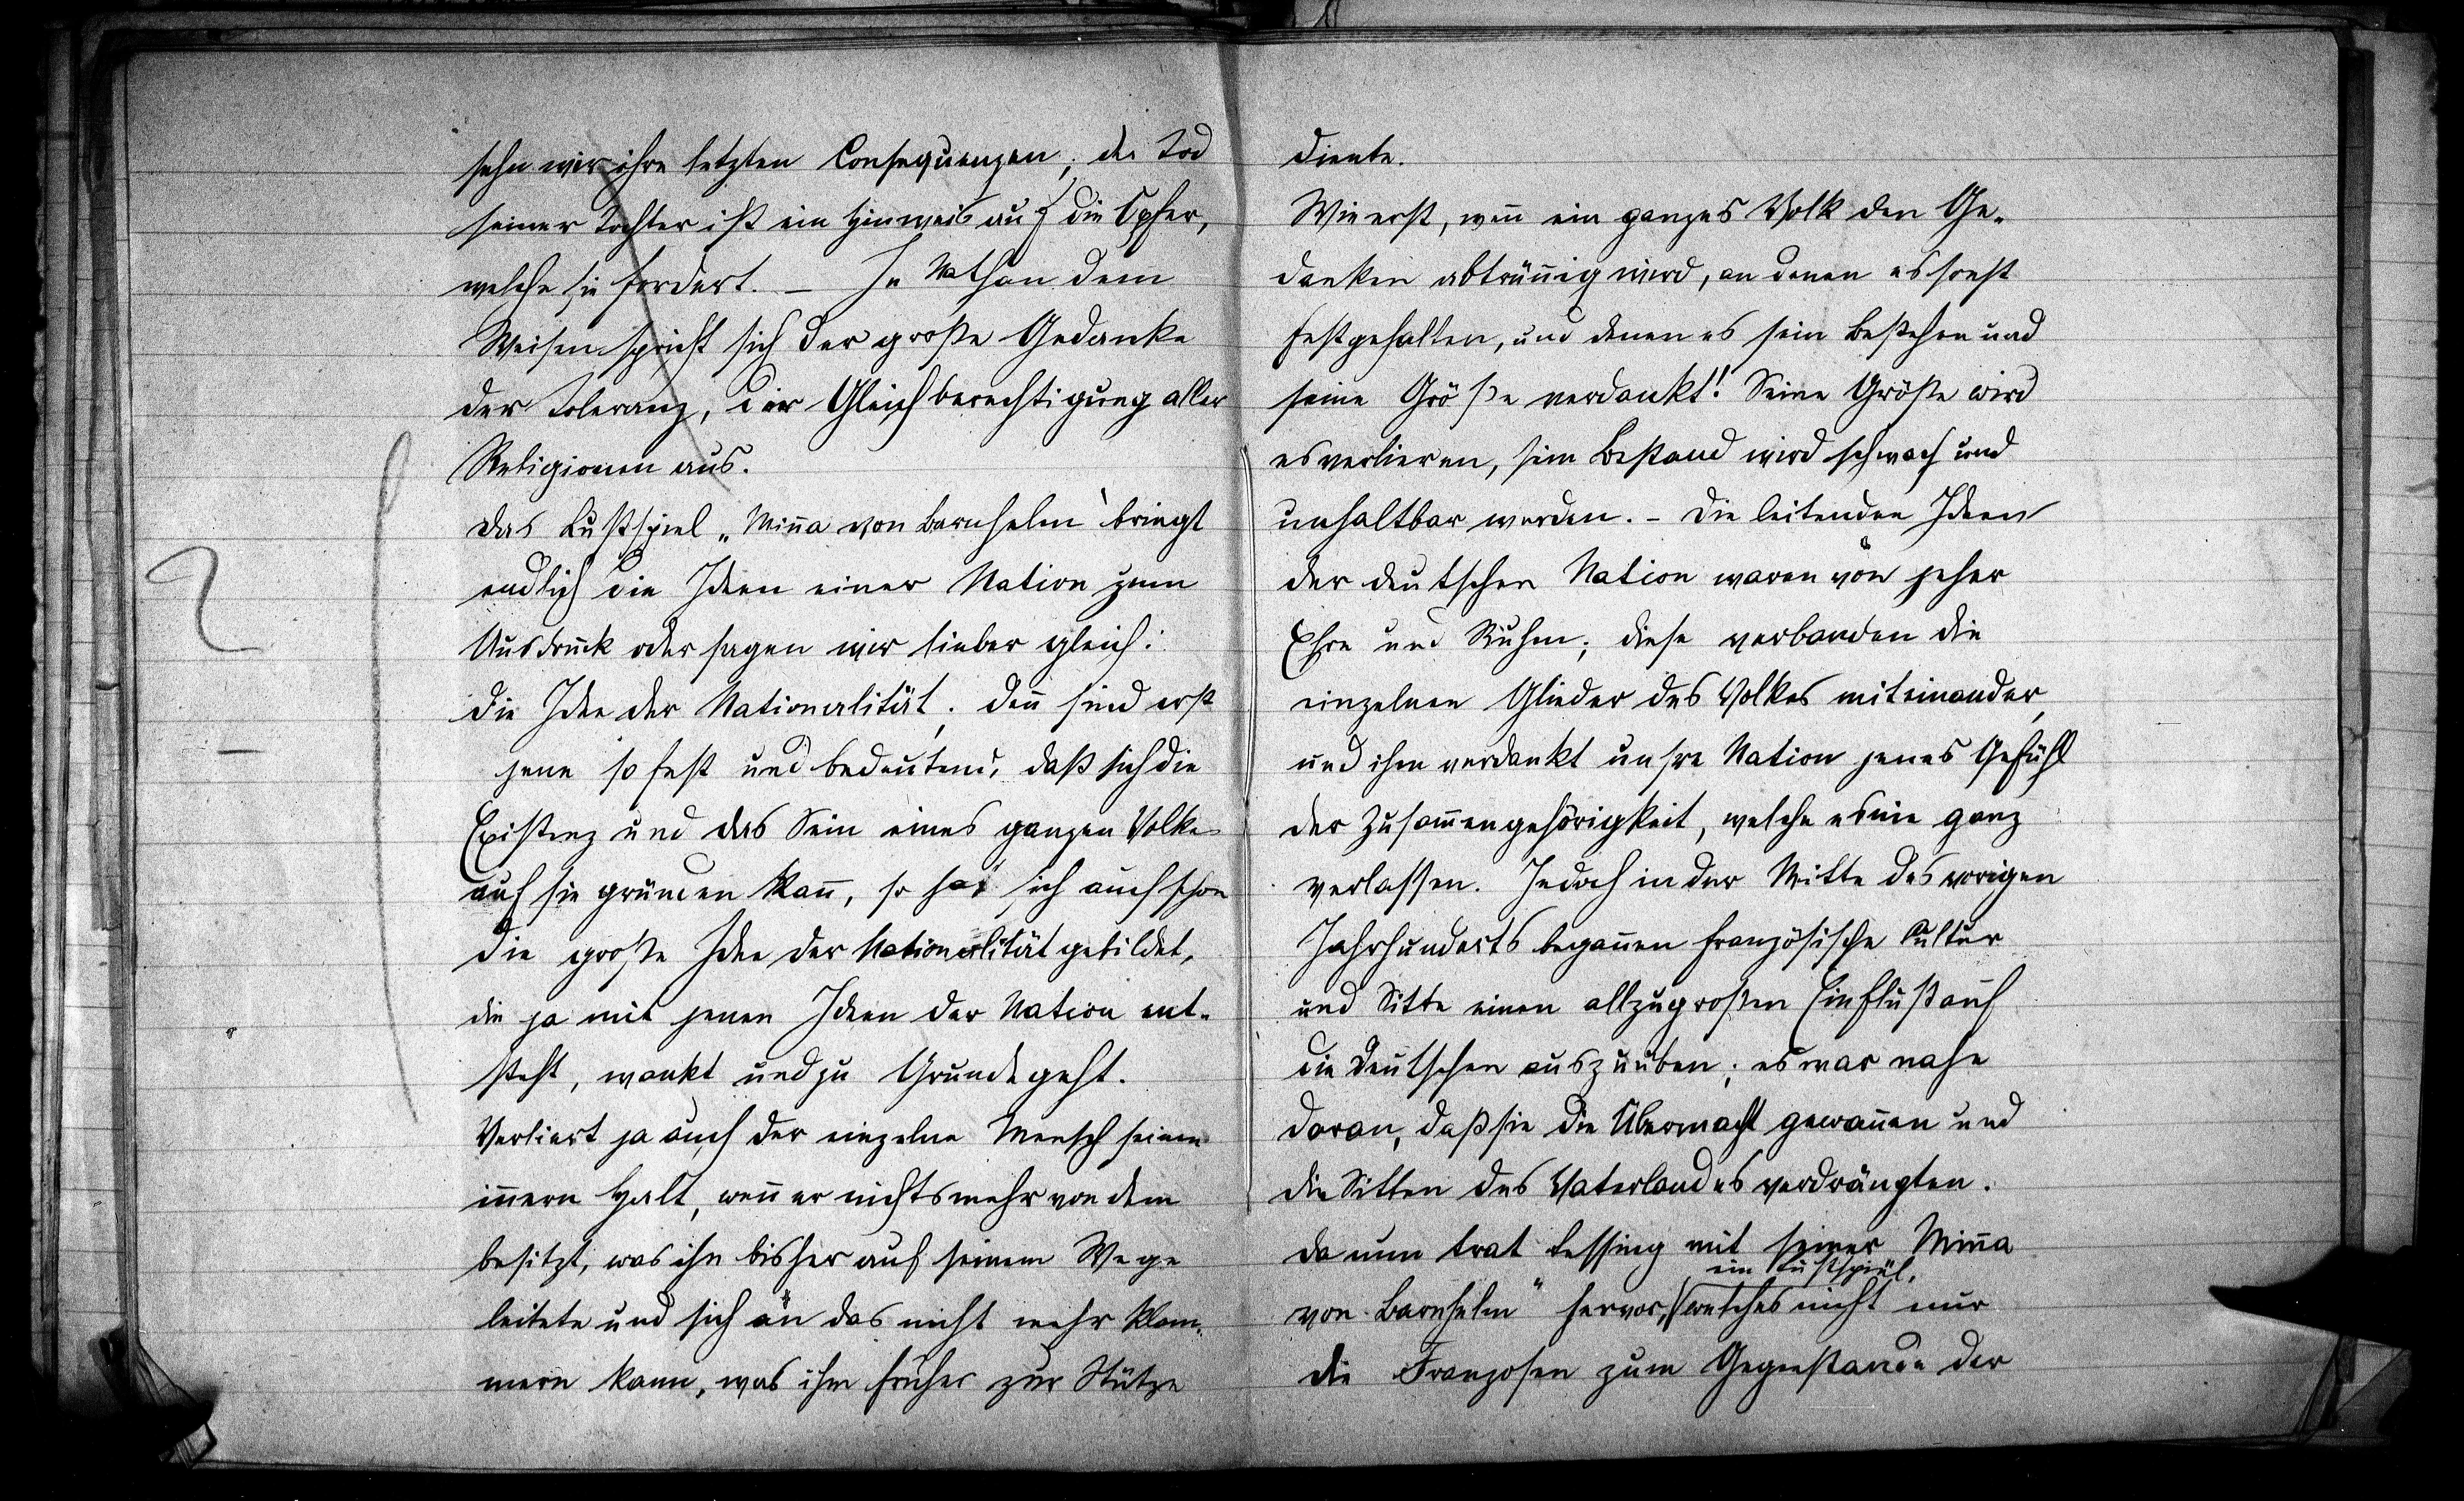 sehn wir ihre letzten Consequenzen; der Tod
seiner Tochter ist ein Hinweis auf die Opfer,
welche sie fordert. – In Nathan dem
Weisen spricht sich der große Gedanke
der Toleranz, der Gleichberechtigung aller
Religionen aus.
Das Lustspiel „Miña von Barnhelm" bringt
endlich die Ideen einer Nation zum
Ausdruck oder sagen wir lieber gleich:
die Idee der Nationalität; deñ sind erst
jene so fest und bedeutend, daß sich die
Existenz und das Sein eines ganzen Volkes
auf sie gründen kañ, so hat sich auch schon
die große Idee der Nationalität gebildet,
die ja mit jenen Ideen der Nation ent-
steht, wankt und zu Grunde geht.
Verliert ja auch der einzelne Mensch seinen
iñern Halt, weñ er nichts mehr von dem
besitzt, was ihn bisher auf seinem Wege
leitete und sich an das nicht mehr klam-
mern kann, was ihm früher zur Stütze
diente.
Wie erst, weñ ein ganzes Volk den Ge-
danken abtrüñig wird, an denen es sonst
festgehalten, und denen es sein Bestehen und
seine Größe verdankt! Seine Größe wird
es verlieren, sein Bestand wird schwach und
unhaltbar werden. – Die leitenden Ideen
der deutschen Nation waren von jeher
Ehre und Ruhm; diese verbanden die
einzelnen Glieder des Volkes miteinander,
und ihm verdankt unsre Nation jenes Gefühl
der Zusam̃engehörigkeit, welche es nie ganz
verlassen. Jedoch in der Mitte des vorigen
Jahrhunderts begañen französische Cultur
und Sitte einen allzugroßen Einfluß auf
die Deutschen auszuüben; es war nahe
daran, daß sie die Übermacht gewañen und
die Sitten des Vaterlandes verdrängten.
Da nun trat Lessing mit seiner Miña
ein Lustspiel,
von Barnhelm" hervor, welches nicht nur
die Franzosen zum Gegenstande der